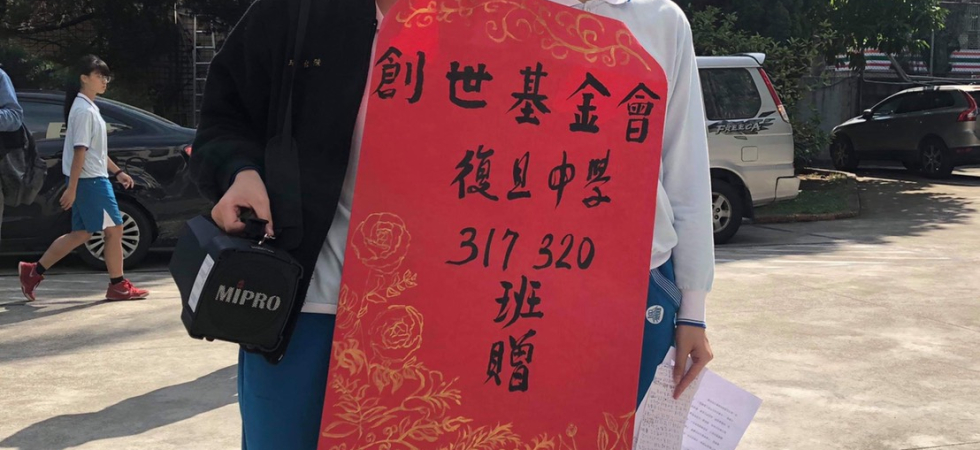 創世基金會
復旦中學
317 320
班
贈
MIPRO
FREECA